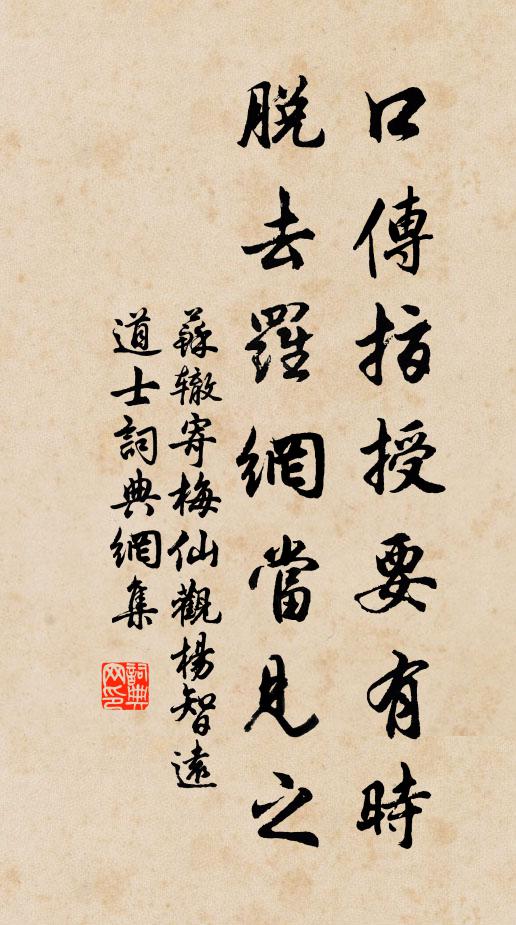 口傳指授要有時
脫去羅網當見之
蘇辙寄梅仙觀楊智遠
道士詞典網集
詞典網印